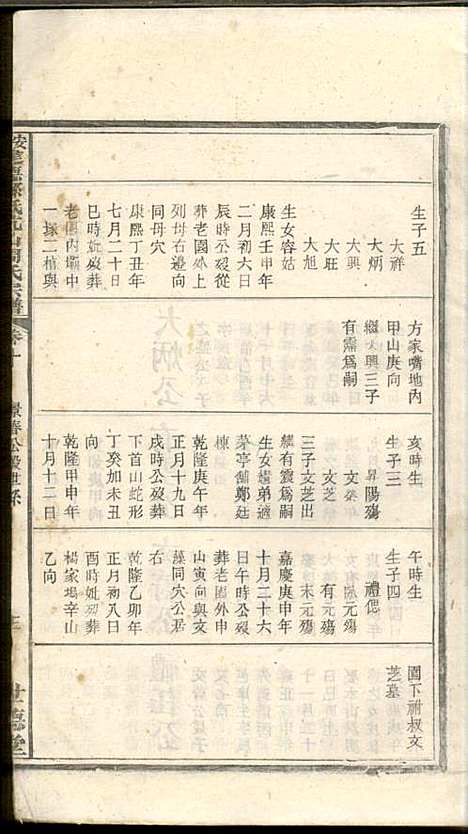 生子五
大祥
大炳
大興
大旺
大旭
生女容姑
康熙壬申年
二月初六日
辰時公歿從
葬老園外上
列母右邊向
同母穴
康熙丁丑年
七月二十日
巳時妣歿葬
老園內壩中
一塚二棺與
方家嘴地內
甲山庚向
繼大興三子
有霈爲嗣
亥時生
生子三
昇陽殤
文癸年
文芝
三子文芝出
繼有霞爲嗣
生女壚弟適
茅亭舖鄭廷
棟
乾隆庚午年
正月十九日
戌時公歿葬
下首山蛇形
丁癸加未丑
向
乾隆甲申年
十月十二日
午時生
生子四
禮偲
元殤
有元殤
末元殤
嘉慶庚申年
十月二十六
日午時公歿
葬老園外申
山寅向與文
藻同穴公居
右
乾隆乙卯年
正月初八日
酉時妣歿葬
楊家塲辛山
乙向
園下祔叔文
芝墓
周氏宗譜
卷十
景春公段世系
世德堂